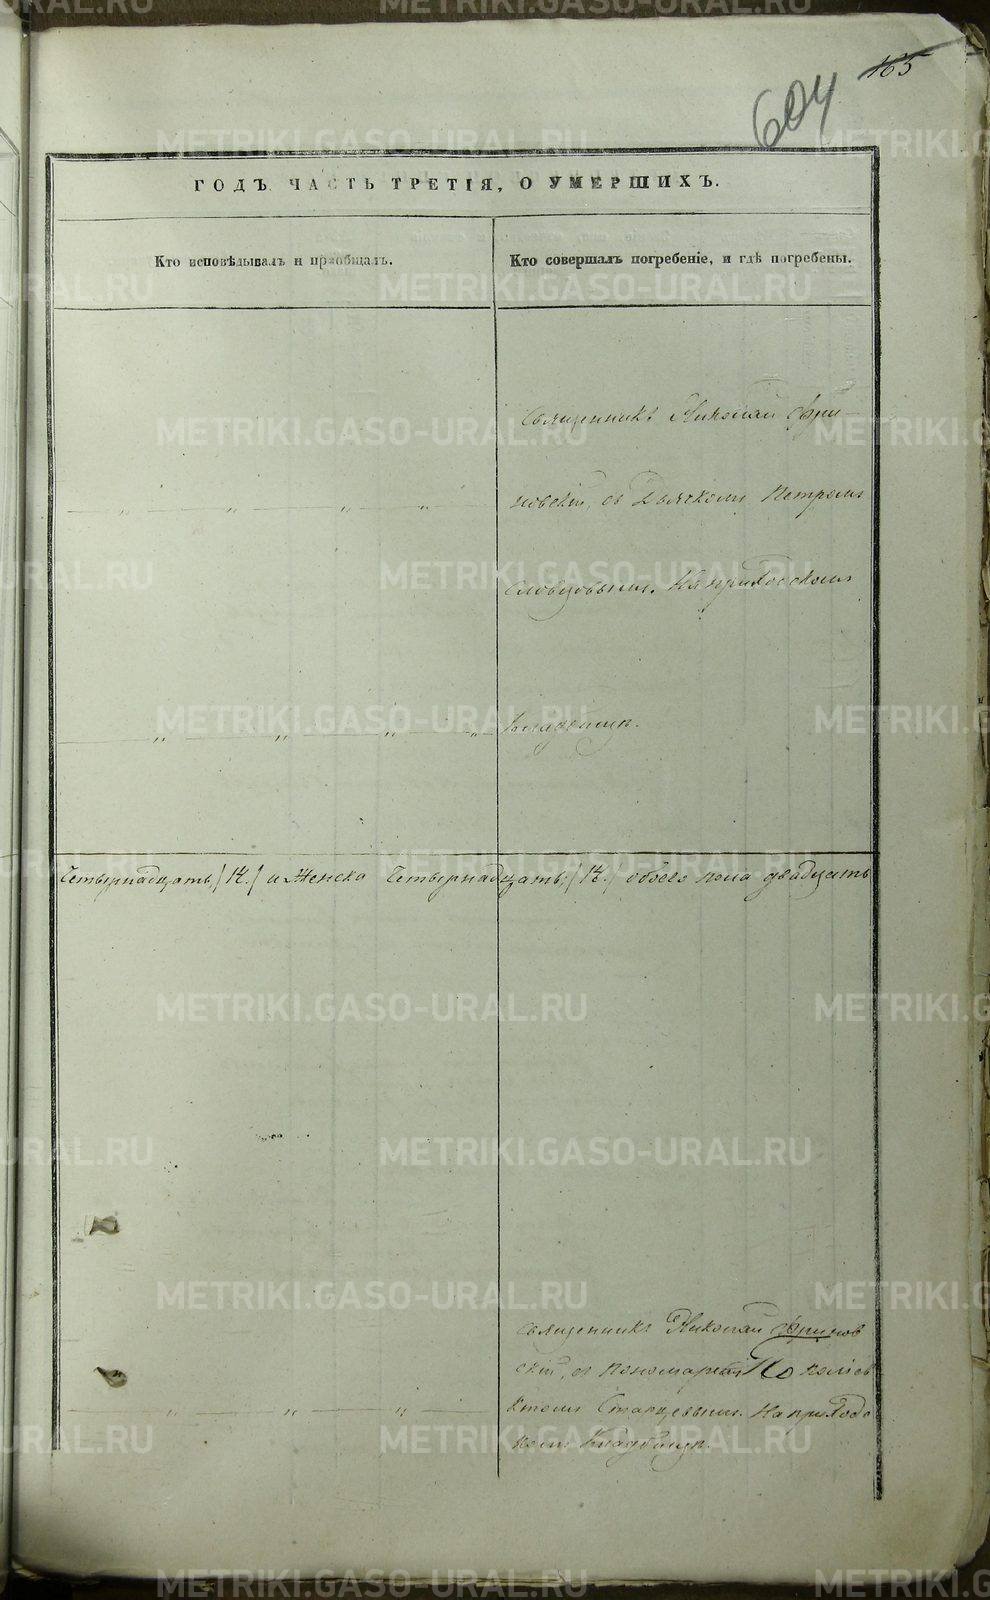 165
604
ГОДЪ ЧАСТЬ ТРЕТІЯ, О УМЕРШИХЪ.
Кто исповѣдывалъ и пріобщалъ.
Кто совершалъ погребеніе, и гдѣ погребены.
Священникъ Николай Фри-
новскій, съ Дьячкомъ Петромъ
Словцовымъ. На приходскомъ
Кладбищѣ.
Четырнадцать /14./ и Женска Четырнадцать /14./ обоего пола двадцать
Священникъ Николай Фринов
скій, съ Пономаремъ
Старцевымъ. На приходс
комъ Кладбищѣ.
METRIKI.GASO-URAL.RU